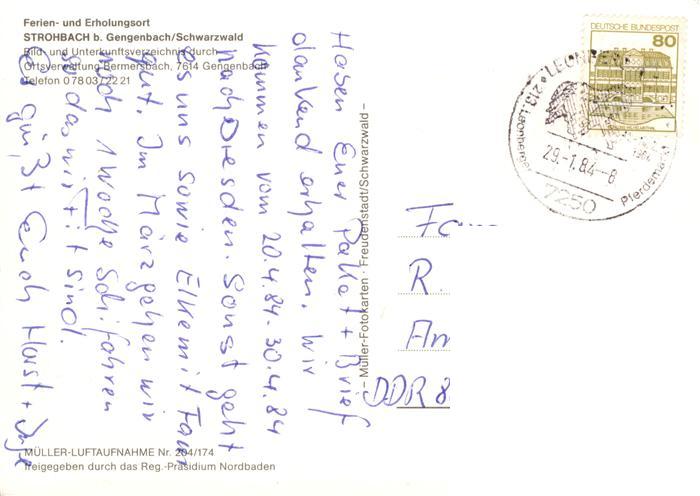 Ferien- und Erholungsort
STROHBACH b. Gengenbach/Schwarzwald
Bild- und Unterkunftsverzeichnis durch
Ortsverwaltung Bermersbach, 7614 Gengenbach
Telefon 0 78 03/22 21
Haben Euer Paket + Brief
dankend erhalten. Wir
kommen vom 20.4.84-30.4.84
nach Dresden. Sonst geht
es uns sowie Elke mit Fam
gut. Im März gehen wir
noch 1 Woche Schifahren
so das wir fit sind.
Es grüßt Euch Horst + Inge
MÜLLER-LUFTAUFNAHME Nr. 204/174
freigegeben durch das Reg.-Präsidium Nordbaden
– Müller-Fotokarten · Freudenstadt/Schwarzwald –
DEUTSCHE BUNDESPOST
80
LEONBERG
218. Leonberger
Pferdemarkt
29.-1.84-8
7250
Fa
R.
Am
DDR 8